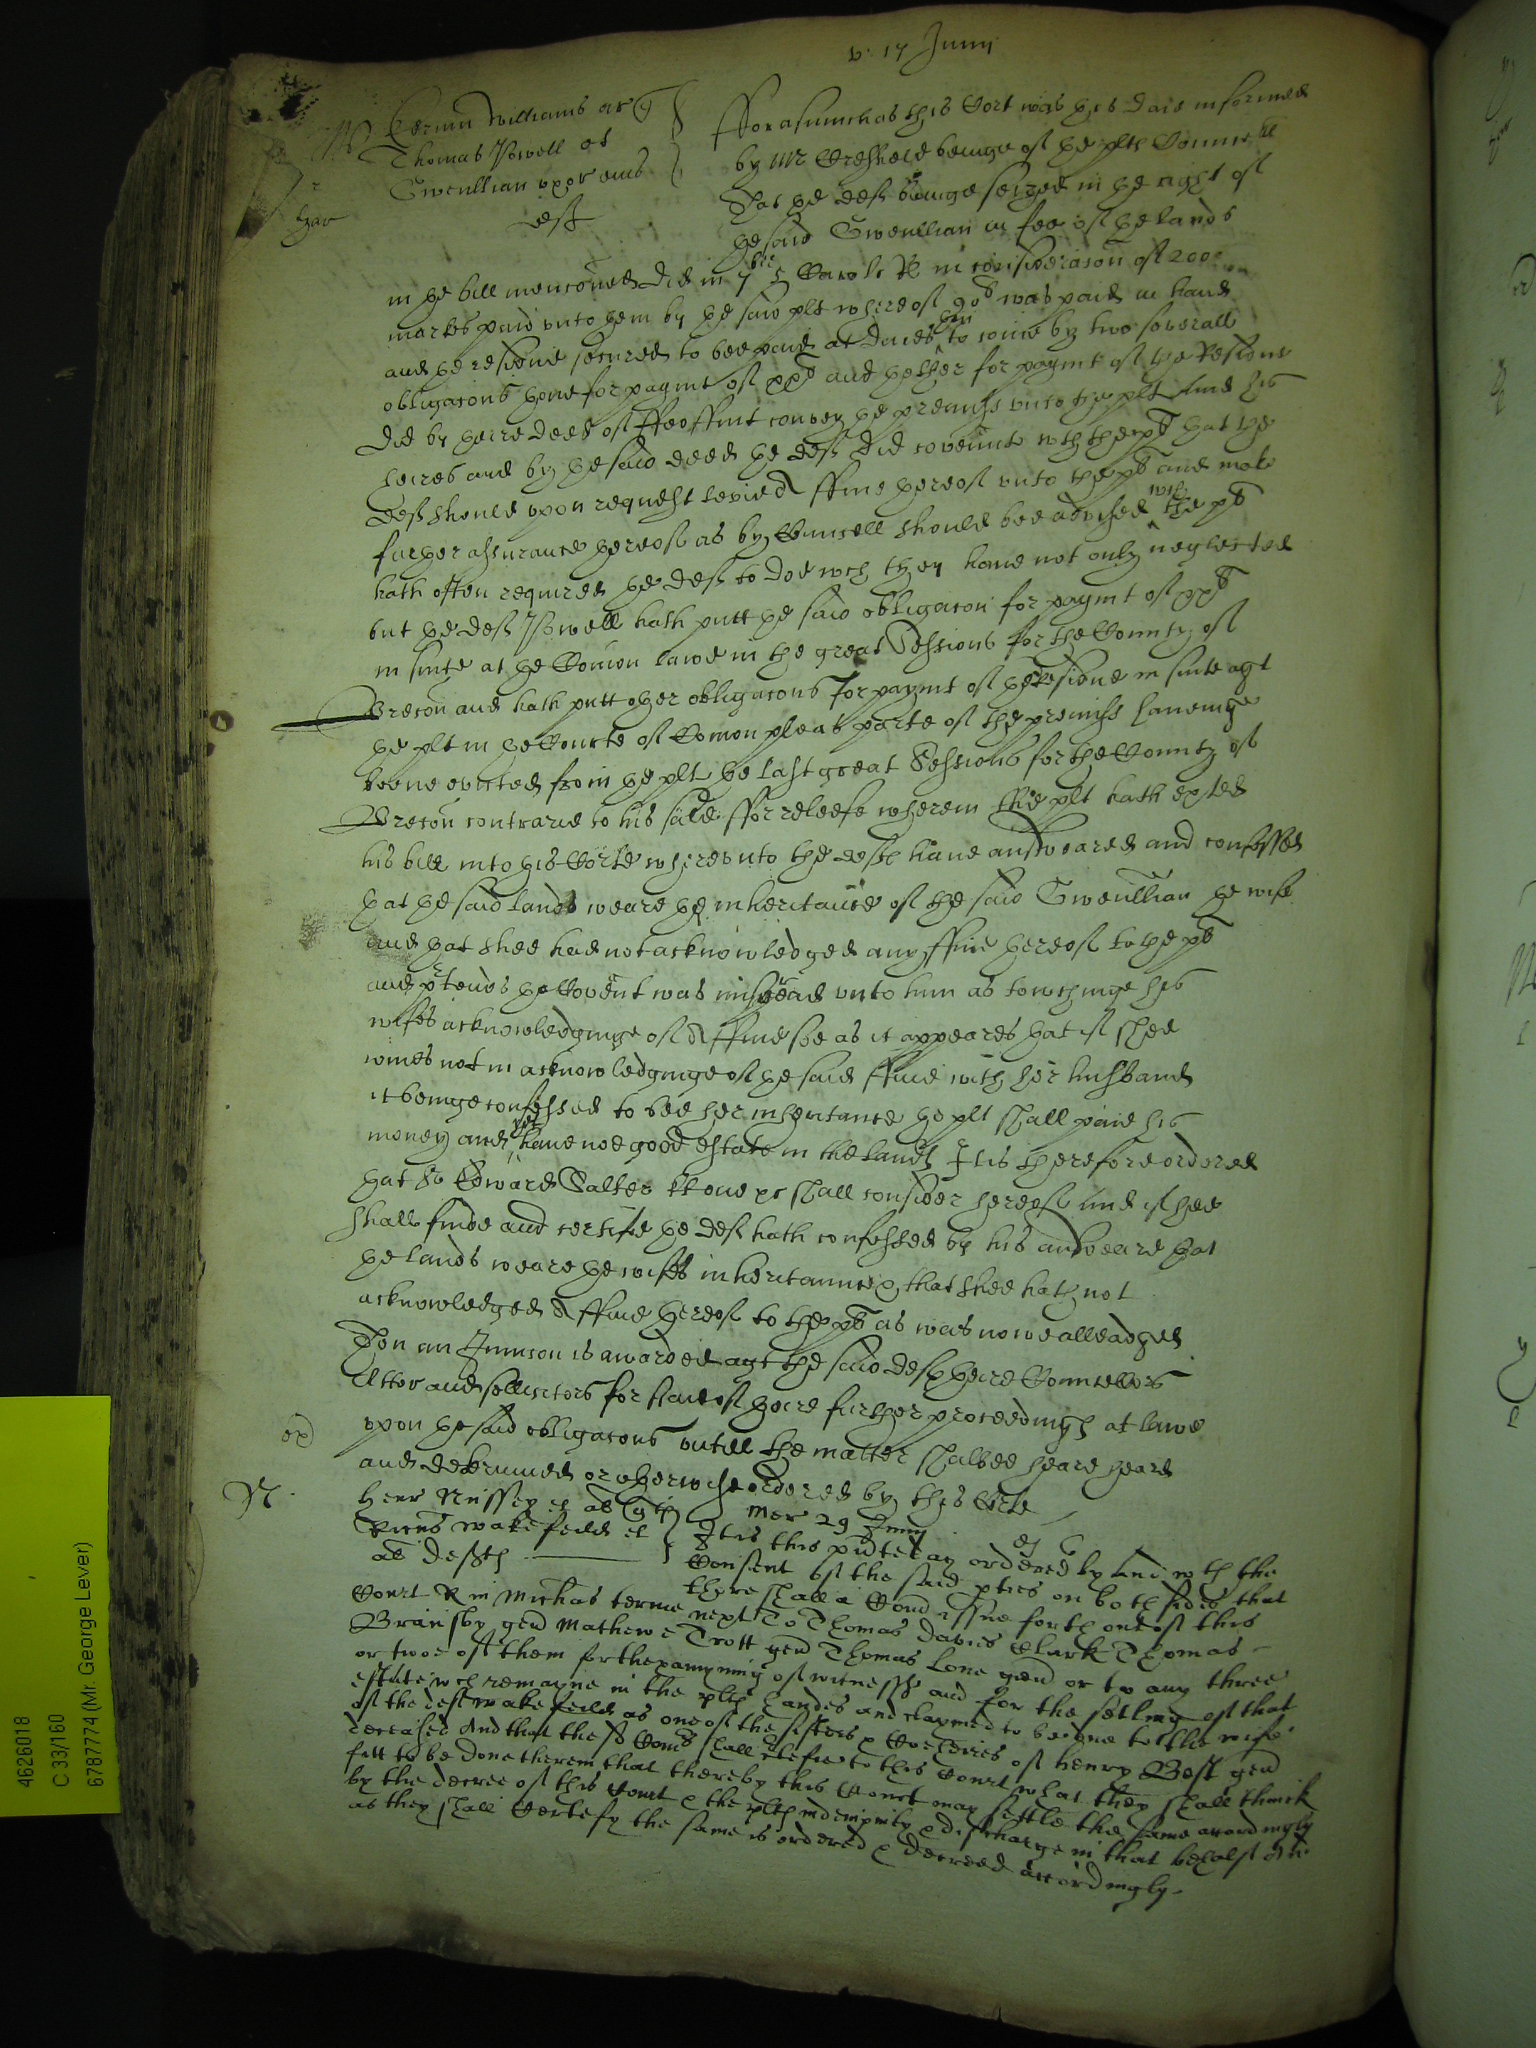 v: 17 Junii
Williams ar q
Thomas Powell et
Gwenllian uxor eius
def
har
Fforasmuch as this Cort was this daie informed
by Mr beinge of the plts Councell
That the deft beinge seized in the right of
the said Gwenllian in fee of the lands
in the bill menconed did in 7ber 5 Caroli R in consideracon of 200
markes paid unto them by the said plt whereof was paid in hand
and the residue secured to bee paid at daies then to come by two severall
obligacons thone for paymt of xxli and thother for paymt of the Residue
did by theire deed of Ffeoffmt convey the premiss unto the plt and his
heires and by the said deed the deft did covennt wth the plt that the
deft should upon request levie A ffine thereof unto the plt and make
further assurance thereof as by Councell should bee advised wch the plt
hath often required the deft to doe wch they have not only neglected
but the deft Powell hath putt the said obligacon for paymt of xxli
in suite at the Comon lawe in the great Sessions for the County of
Brecon and hath putt other obligacons for paymt of the Residue in suite agt
the plt in the Courte of Comon pleas parte of the premiss haveinge
beene evicted from the plt the last great Sessions for the County of
Brecon contrarie to his said ffor releefe wherein the plt hath exhted
his bill into this Corte whereunto the defts have answeared and confessed
that the said lands weare the inheritance of the said Gwenllian the wife
and that shee had not acknowledged any ffine thereof to the plt
and ptends the Covent was unto him as towchinge his
wifes acknowledginge of A ffine soe as it appeares that if shee
joines not in acknowledginge of the said ffine with her husband
it beinge confessed to bee her inheritance the plt shall paie his
money and yet have noe good estate in the lands It is therefore ordered
that Sr Edward Salter kt one &c shall consider hereof and if hee
shall finde and certifie the deft hath confessed by his answeare that
the lands weare the wifes inheritannce & that shee hath not
acknowledged A ffine thereof to the plt as was nowe alleadged
Then an Iniuncon is awarded agt the said defts theire Councellors
Attor and sollicitors for staie of theire further proceedings at lawe
upon the said obligacons untill the matter shalbee heare heard
and determined or otherwise ordered by this Corte
ex
N
Henr Nussey et al q
Ricus Wakefeild et
al defts
Mer 29 Junii
It is this pnte day ordered by and wth the
Consent of the said pties on both sides that
there shall a Comd issue forth out of this
Court R in Michas terme next To Thomas Davies Clark Thomas
Bransby gen Mathewe Trott gen Thomas Lone gen or to any three
or twoe of them for thexamyning of witnesses and for the setling of that
estate wch remayne in the plts handes and claymed to be due to the wife
of the deft Wakefeild as one of the sisters & Coeheires of Henry Best gen
deceased And that the sd Coms shall certefie to this Court what they shall thinck
fitt to be done therein that thereby this Court may settle the same accordingly
by the decree of this Court & the plts indempnity & discharge in that behalf
as they shall Certefy the same is ordered & decreed accordingly.
4626018
C 33/160
6787774 (Mr. George Lever)